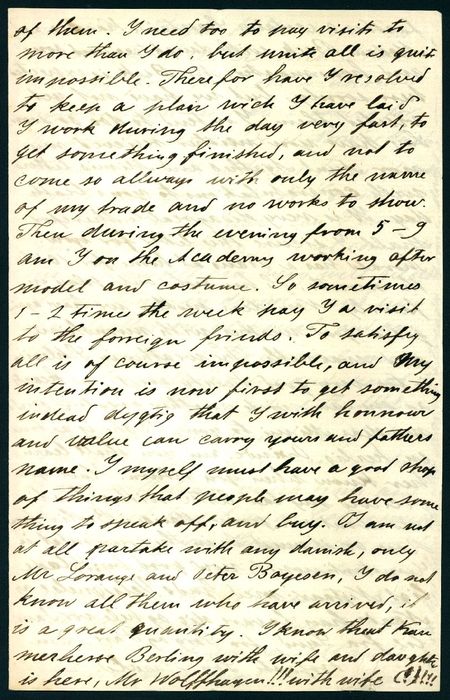 of them. I need too to pay visits to
more than I do, but unite all is quit
impossible. Therefor have I resolved
to keep a plan wich I have laid
I work during the day very fast, to
get something finished, and not to
come so allways with only the name
of my trade and no works to show.
Then during the evening from 5-9
am I on the Academy working after
model and costume. So sometimes
1-2 times the week pay I a visit
to the forreign friends. To satisfy
all is of course impossible, and my
intention is now first to get something
indead dygtig that I with honnour
and value can carry yours and fathers
name. I myself must have a good shop
of things that people may have some
thing to speak off, and buy. I am not
at all partake with any danish, only
Mr Lorange and Peter Boyesen, I do not
know all them who have arrived, it
is a great quantity. I know that Kam
merherre Berling with wife and daughte
is here, Mr Wolffhagen!!! with wife (!)!!!